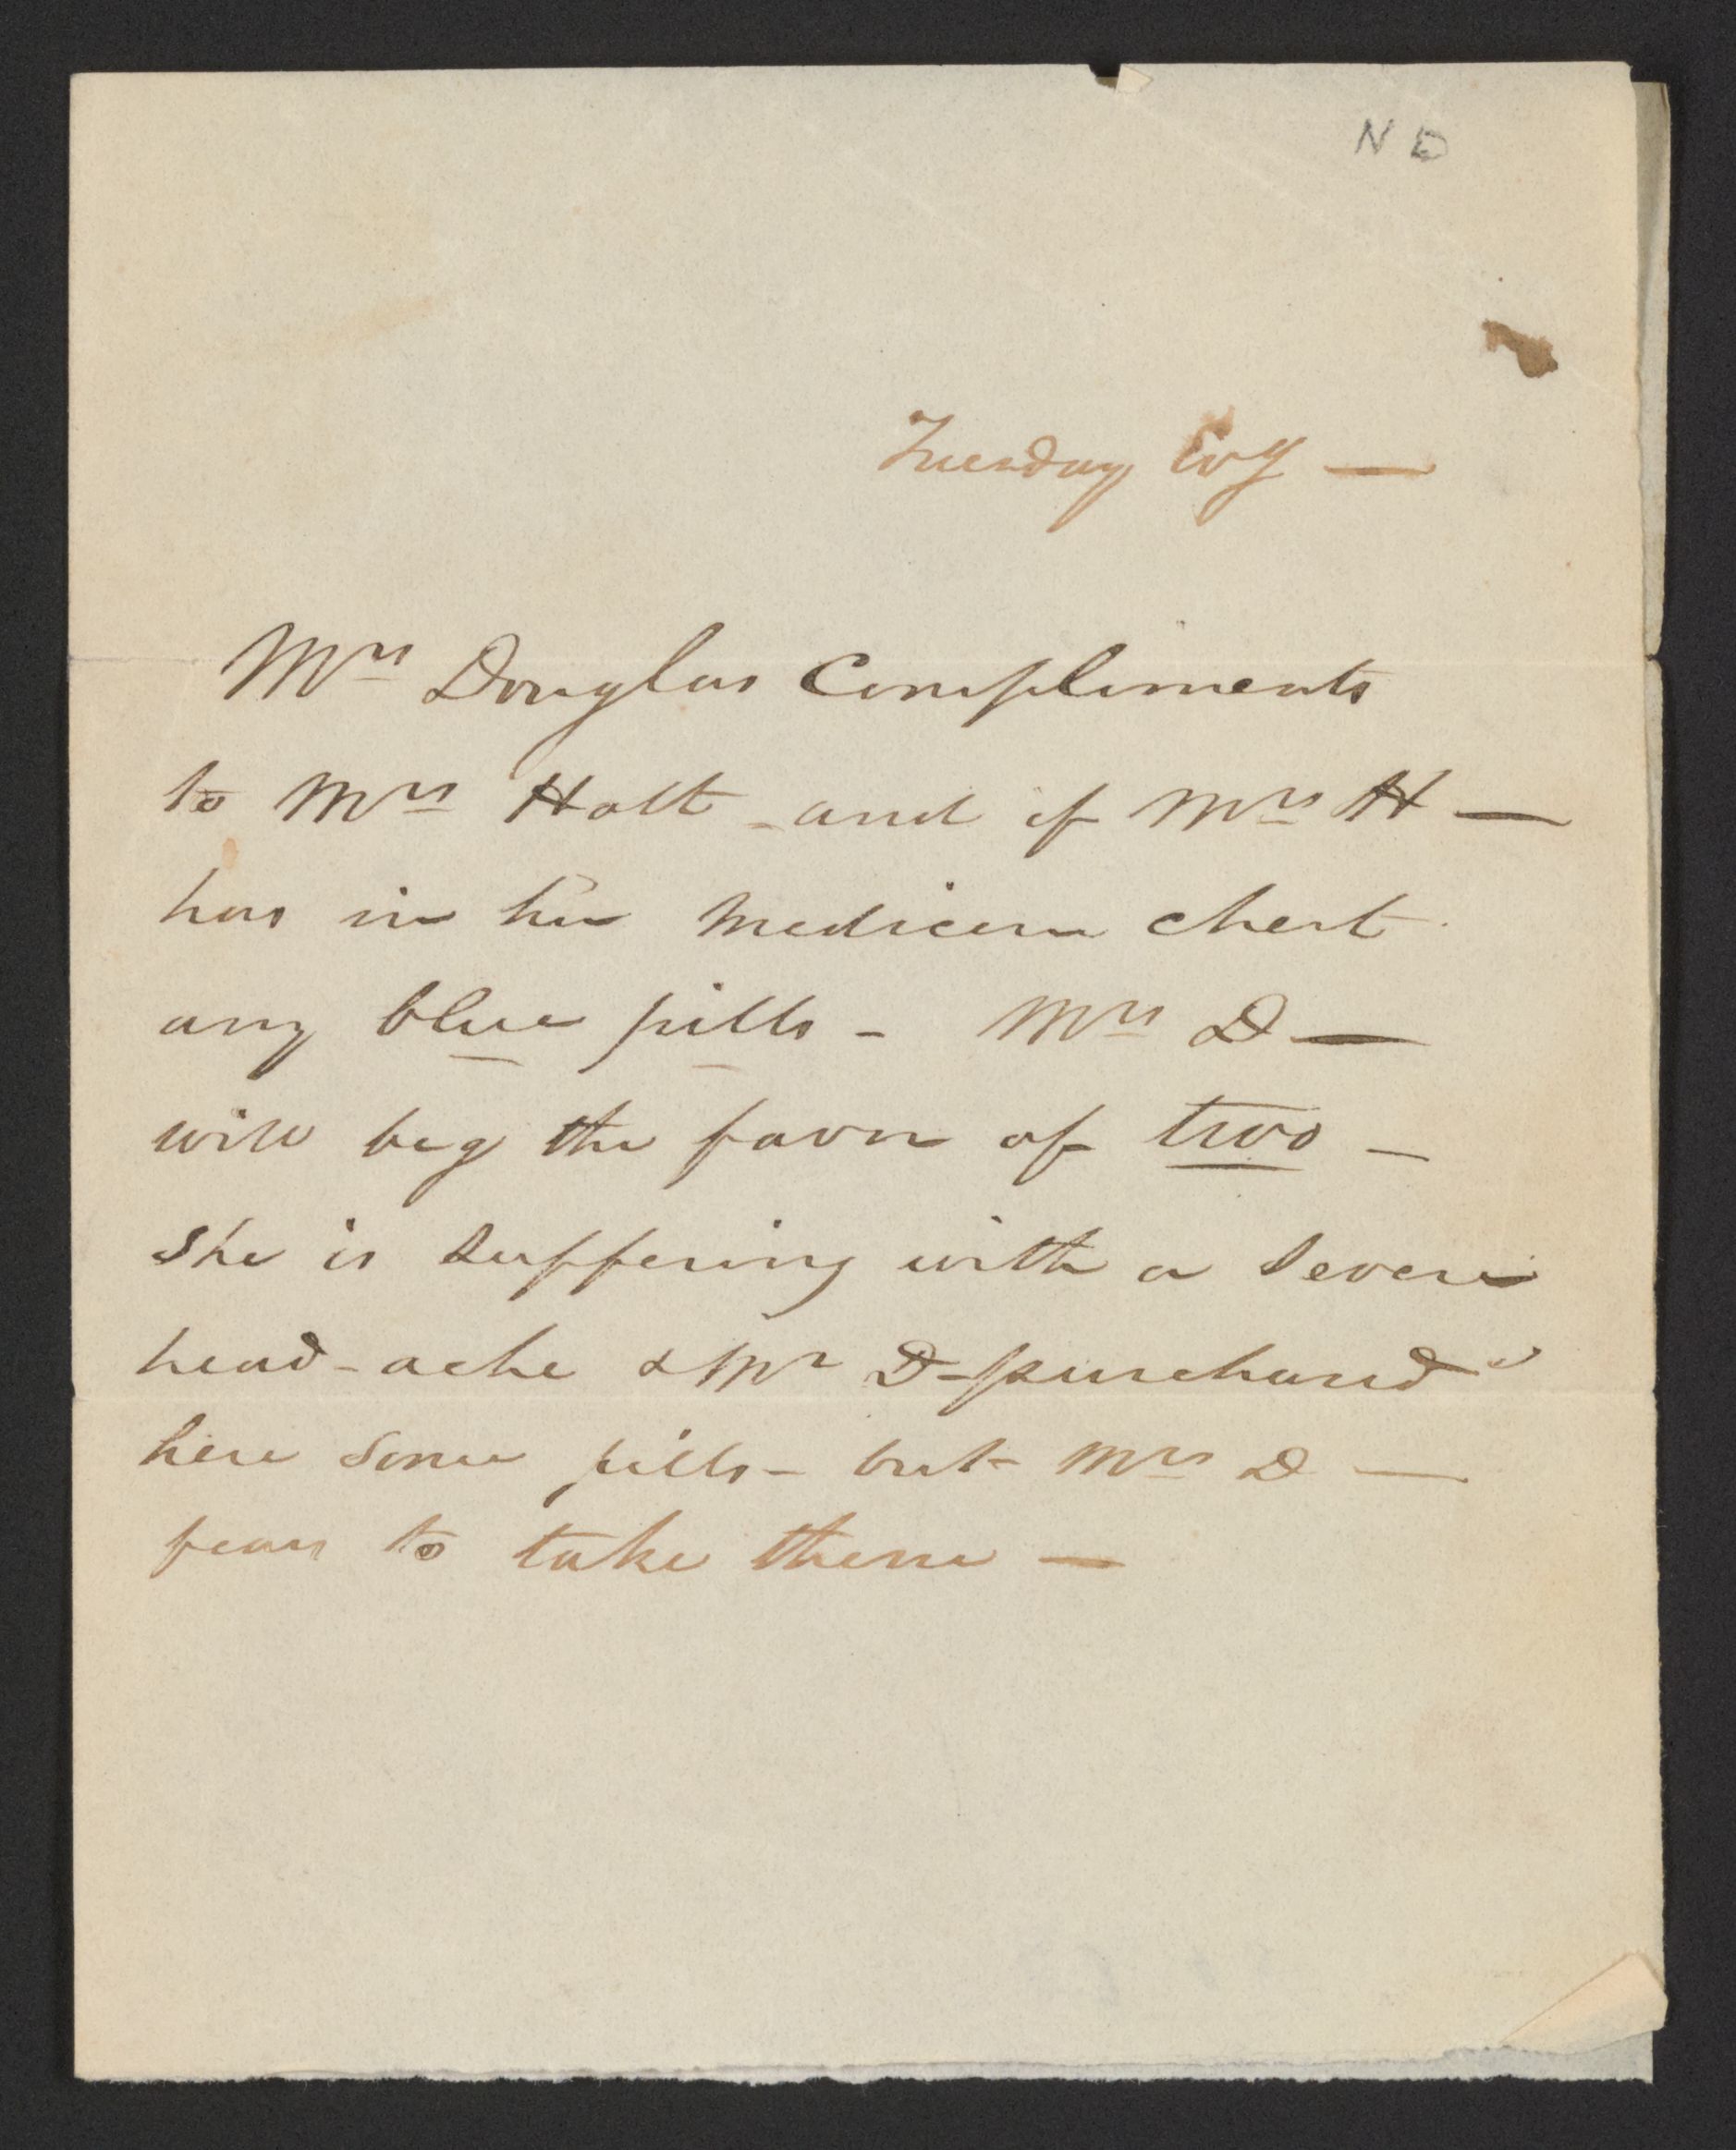 N D
Tuesday Evg —
Mrs Douglas Compliments
to Mrs Holt - and if Mrs H —
has in her Medicine chest
any blue pills - Mrs D —
will beg the favor of two —
She is suffering with a severe
head-ache & Mr D- purchased
here some pills - but Mrs D —
fears to take them —